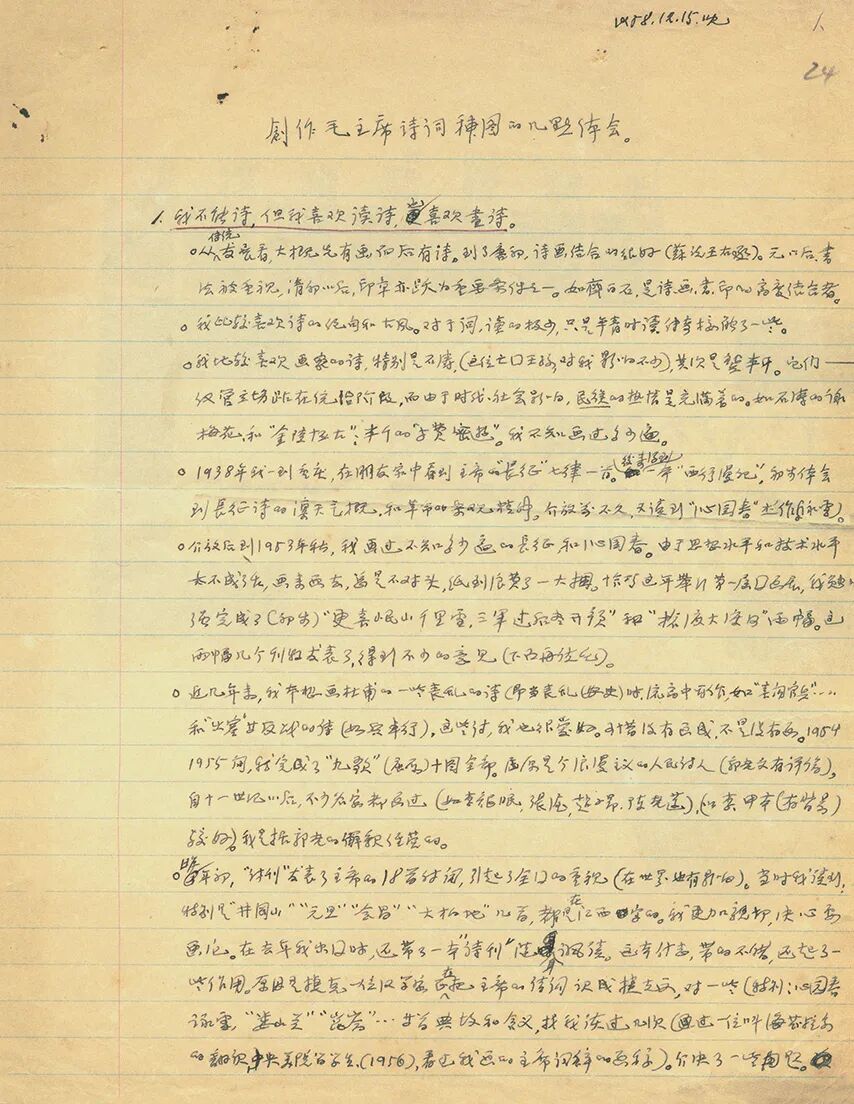 1958.12.15.晚
24
創作毛主席诗词插图的几點体会。
1. 我不能诗,但我喜欢读诗,尚喜欢畫诗。
传统
从发展看大概先有画而后有诗。到了唐初,诗画结合的很好(蘇说王右丞)。元以后,書
法被重视,清初以后,印章亦跃为重要条件之一。如齊白石,是诗、画、書、印的高度结合者。
我比较喜欢诗的绝句和古风。对于词,读的极少,只是年青时读传奇接触了一些。
我比较喜欢画家的诗,特别是石涛,(这位亡囗王孙,对我影响不少),其次是。它们——
仅管立场站在统治阶级,而由于时代、社会影响,民族的热情是充满着的。如石涛的咏
梅花,和“金陵怀古”;的“”。我不知画过多少遍。
1938年我一到重庆,在朋友家中看到主席的“長征”七律一首。後来得到一本“西行漫记”,初步体会
到長征诗的浑天气概,和革命的乐观精神。介放前不久,又读到“沁园春”大作(咏雪)。
介放后到1953年秋,我画过不知多少遍的長征,和沁园春。由于思想水平和技术水平
太不成了,画来画去,总是不对头,纸到浪费了一大捆。恰巧这年举行第一届囗画展,我勉
强完成了(初步)“更喜岷山千里雪,三軍过后尽开颜”和“抢渡大渡河”两幅。这
两幅几个刊物发表了,得到不少的意见(下面再谈它)。
近几年来,我本想画杜甫的一些丧乱的诗(即当丧乱(安史)时,流离中所作,如“羌村”…
和“出塞”等反战的诗(如兵車行),这些诗,我也很爱好。可惜没有画成,不是没有画。1954
1955间,我完成了“九歌”(屈原)十图全部。屈原是个浪漫主义的人民诗人(郭老文有评价),
自十一世纪以后,不少名家都画过(如李龙眠,張渥,趙子昂、陳老蓮),(以李甲本(有背景)
较好)我是据郭老的解釈经营的。
昨年初,“诗刊”发表了主席的18首诗词,引起了全囗的重视(在世界也有影响)。当时我读到,
特别是“井岡山”“元旦”“会昌”“大柏地”几首,都是在江西写的。我更加親切,决心要
画它。在去年我出囗时,还带了一本“诗刊”。这本什志,带的不错,还起了一
些作用。在把主席的诗词识成捷克文,对一些(特别:沁园春
咏雪,“娄山关”“崑崙”…等首典故和含义,找我谈过几次(通过一位叫海
的翻译,中央美院留学生,(1956),看过我画的主席词的画稿)。介决了一些问题。